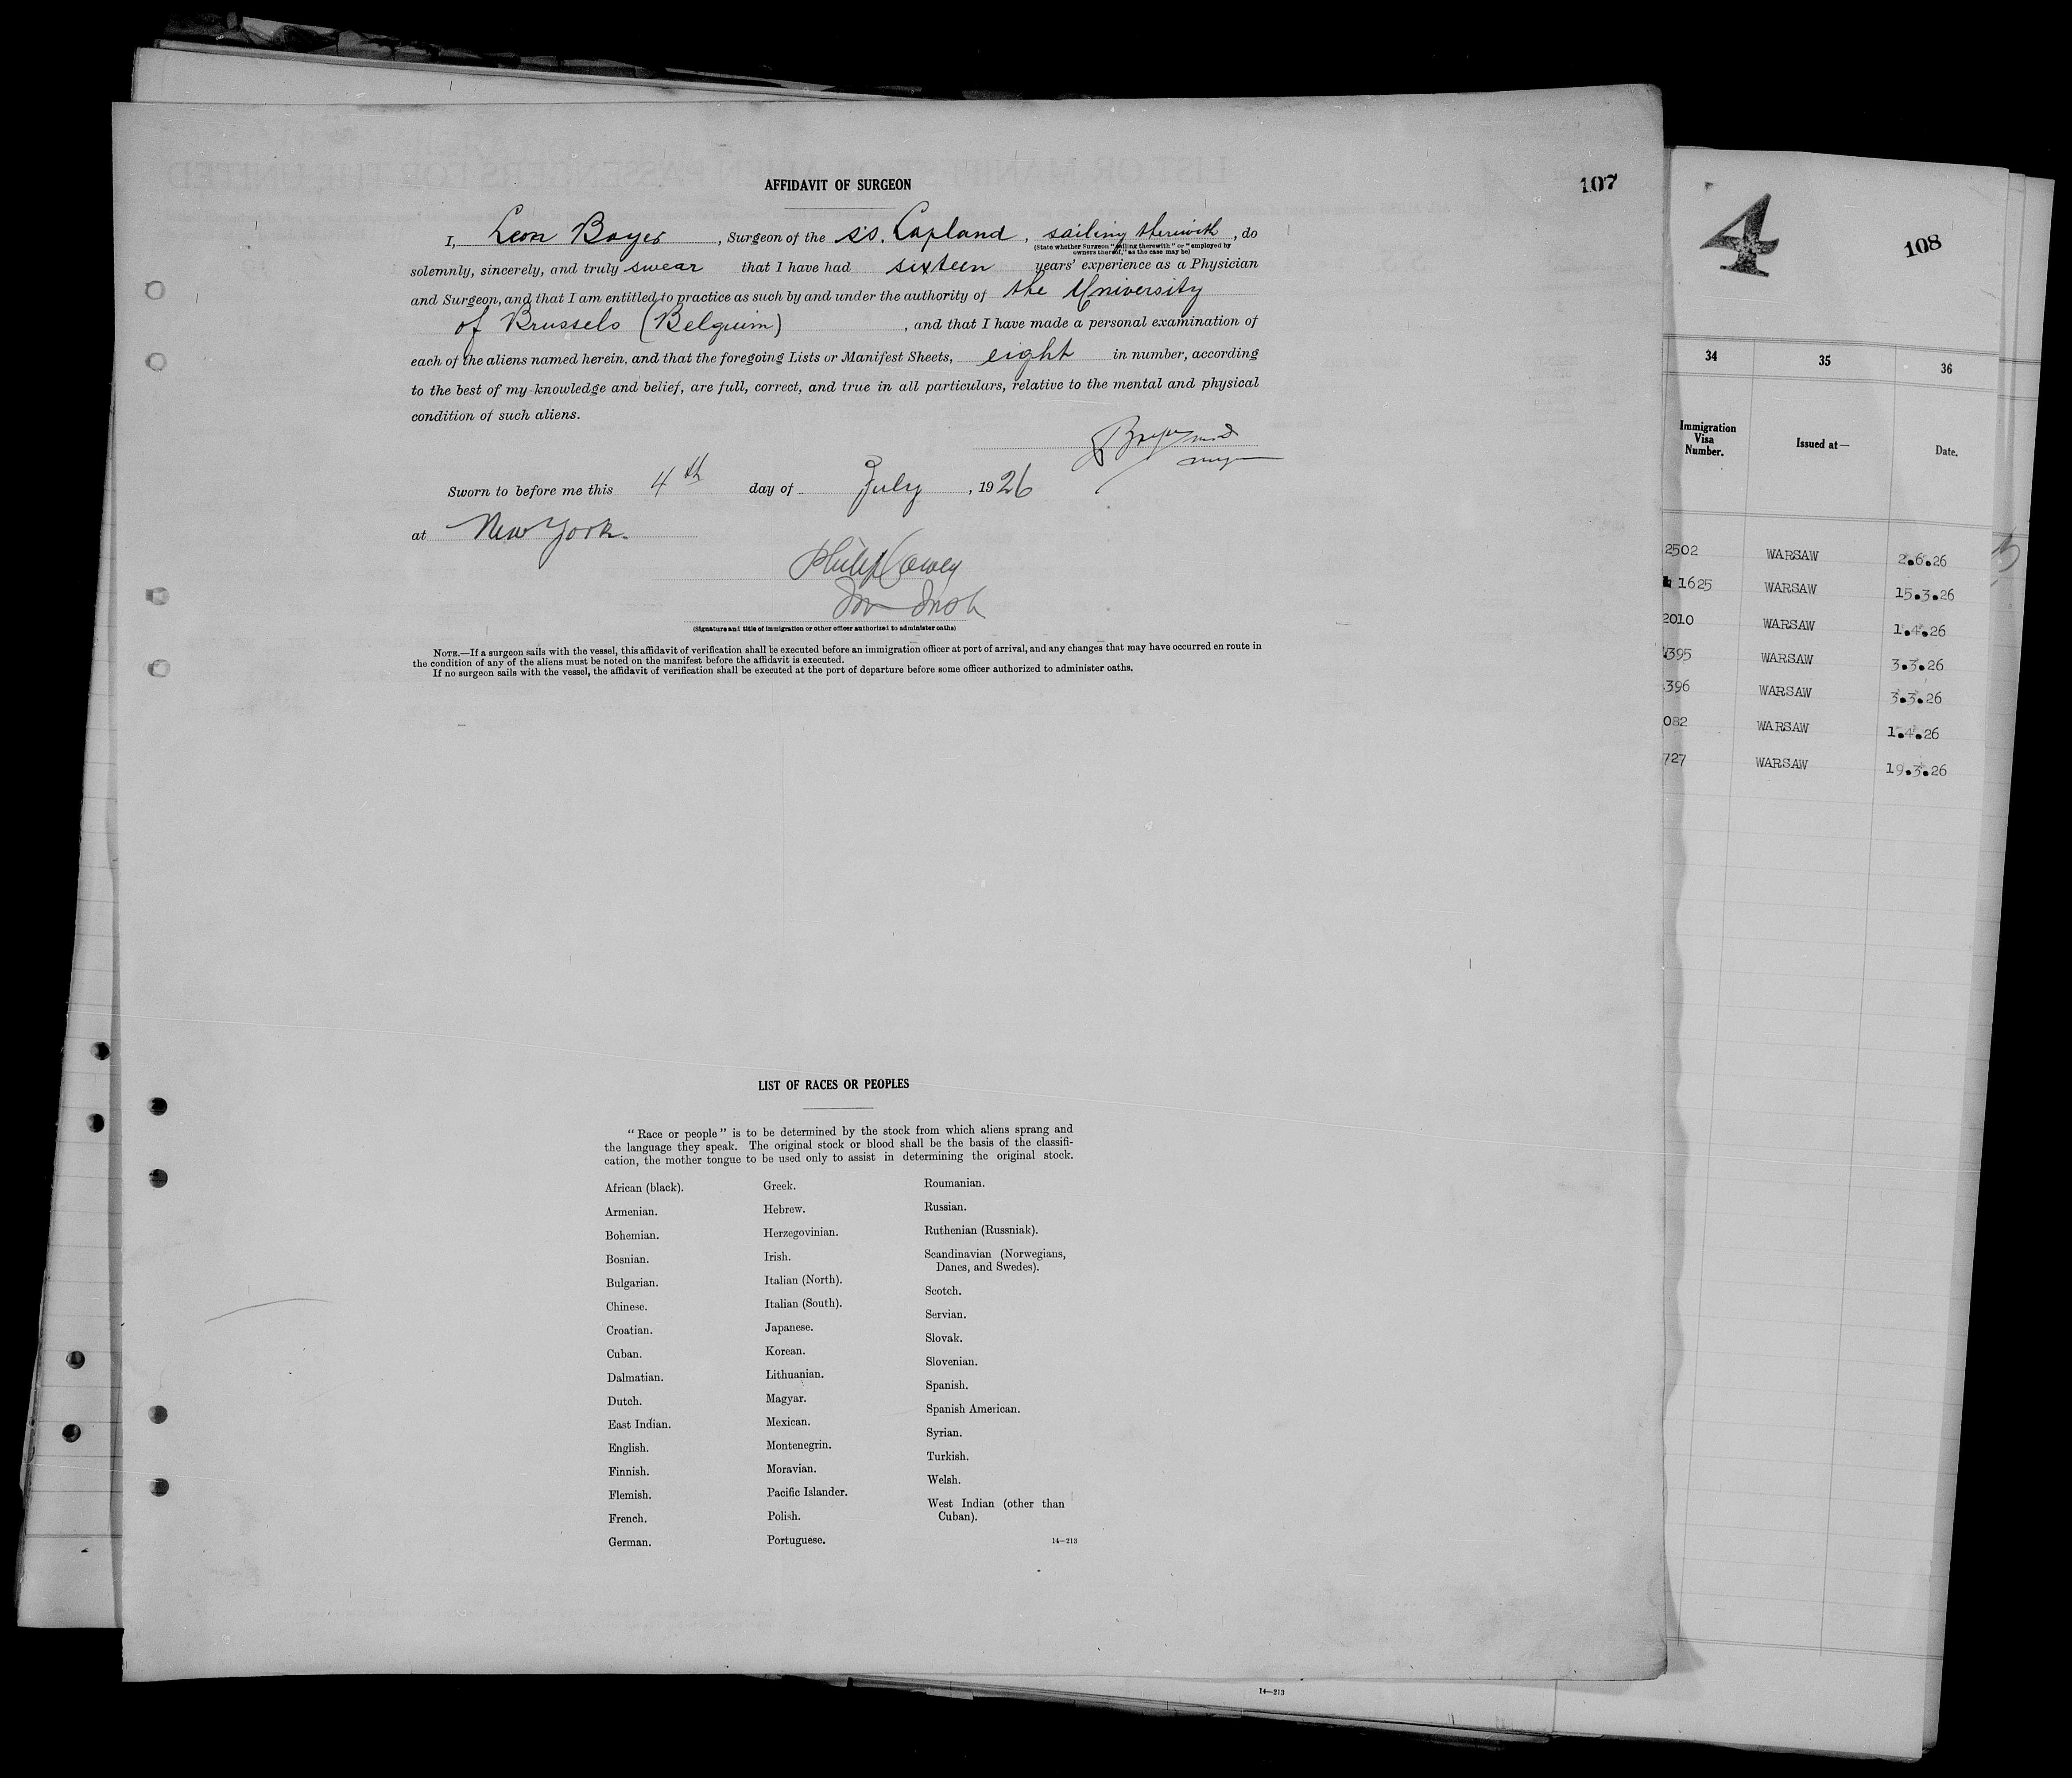 AFFIDAVIT OF SURGEON
107
I, Leon Boyer, Surgeon of the s.s. Lapland, sailing therewith, do
(State whether Surgeon "sailing therewith" or "employed by
owners thereof," as the case may be)
solemnly, sincerely, and truly swear that I have had sixteen years' experience as a Physician
and Surgeon, and that I am entitled to practice as such by and under the authority of the University
of Brussels (Belguim), and that I have made a personal examination of
each of the aliens named herein, and that the foregoing Lists or Manifest Sheets, eight in number, according
to the best of my knowledge and belief, are full, correct, and true in all particulars, relative to the mental and physical
condition of such aliens.
Sworn to before me this 4th day of July, 1926
at New York.
Philip Cowen
(Signature and title of immigration or other officer authorized to administer oaths)
NOTE.—If a surgeon sails with the vessel, this affidavit of verification shall be executed before an immigration officer at port of arrival, and any changes that may have occurred en route in
the condition of any of the aliens must be noted on the manifest before the affidavit is executed.
If no surgeon sails with the vessel, the affidavit of verification shall be executed at the port of departure before some officer authorized to administer oaths.
LIST OF RACES OR PEOPLES
"Race or people" is to be determined by the stock from which aliens sprang and
the language they speak. The original stock or blood shall be the basis of the classifi-
cation, the mother tongue to be used only to assist in determining the original stock.
African (black).
Armenian.
Bohemian.
Bosnian.
Bulgarian.
Chinese.
Croatian.
Cuban.
Dalmatian.
Dutch.
East Indian.
English.
Finnish.
Flemish.
French.
German.
Greek.
Hebrew.
Herzegovinian.
Irish.
Italian (North).
Italian (South).
Japanese.
Korean.
Lithuanian.
Magyar.
Mexican.
Montenegrin.
Moravian.
Pacific Islander.
Polish.
Portuguese.
Roumanian.
Russian.
Ruthenian (Russniak).
Scandinavian (Norwegians,
Danes, and Swedes).
Scotch.
Servian.
Slovak.
Slovenian.
Spanish.
Spanish American.
Syrian.
Turkish.
Welsh.
West Indian (other than
Cuban).
14—213
4
108
34 35 36
Immigration
Visa
Number.
Issued at—
Date.
2502 WARSAW 2.6.26
1625 WARSAW 15.3.26
2010 WARSAW 1.4.26
395 WARSAW 3.3.26
396 WARSAW 3.3.26
082 WARSAW 1.4.26
727 WARSAW 19.3.26
14—213